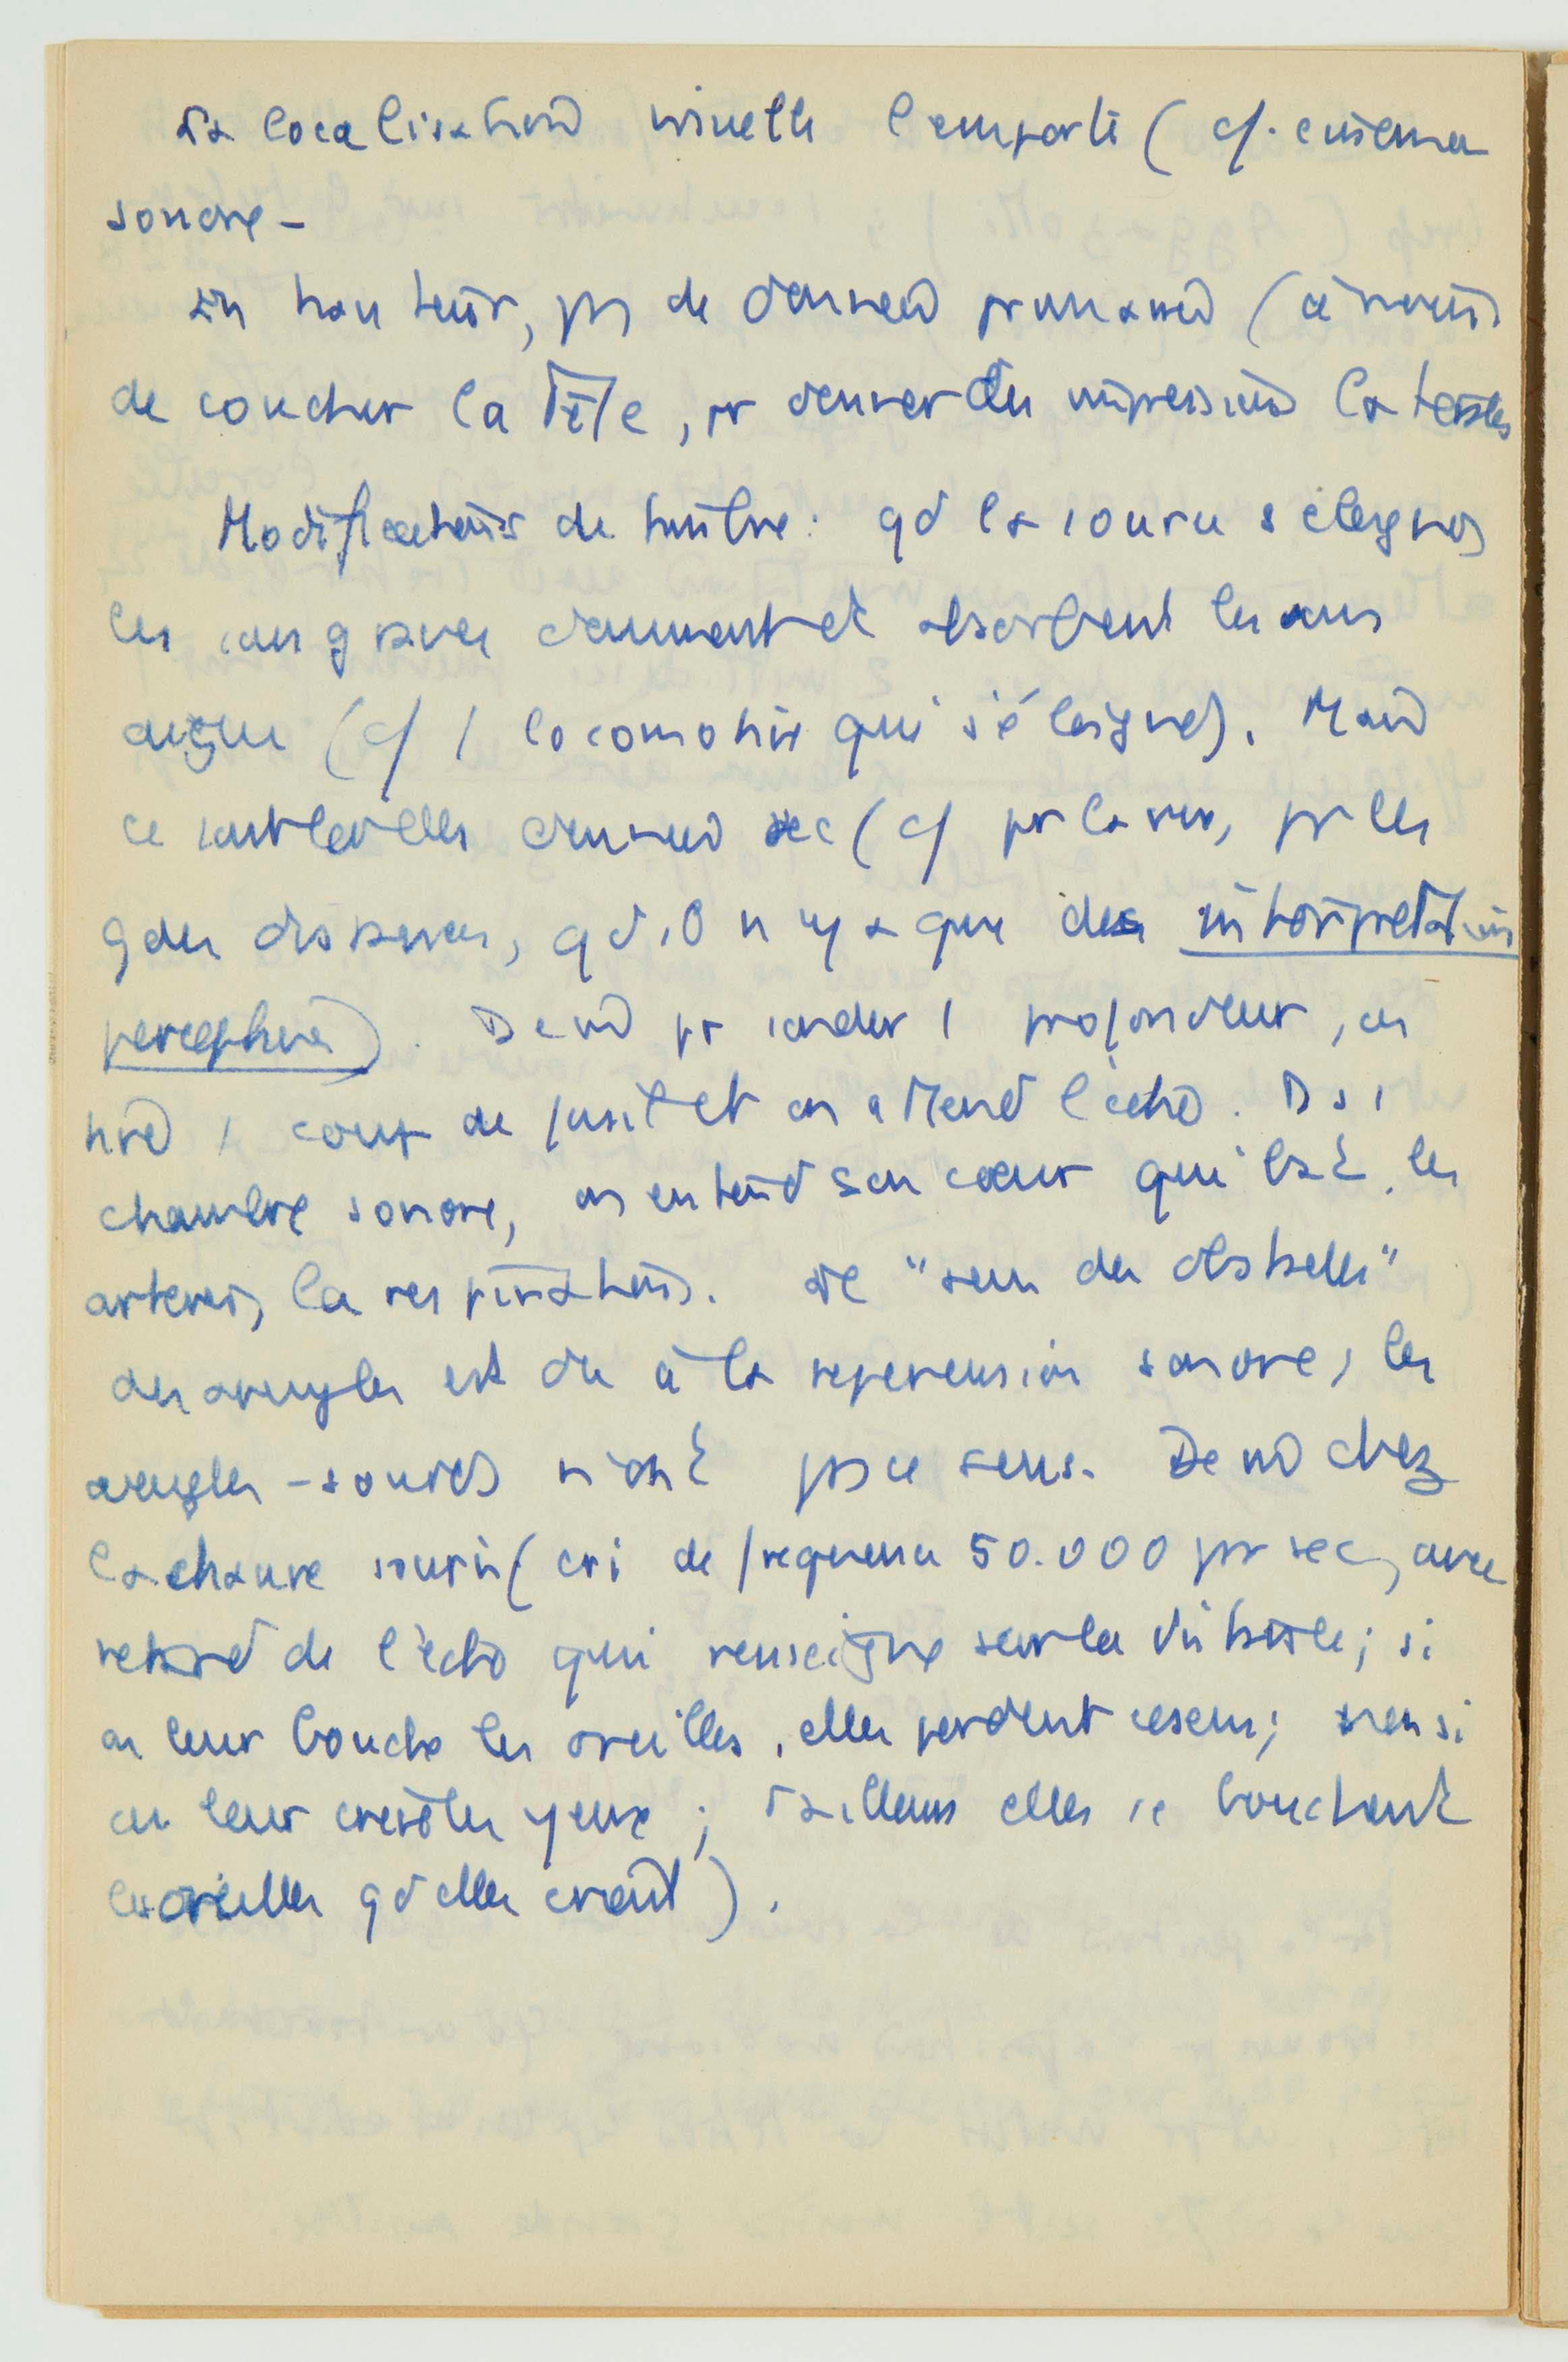 La localisation visuelle l'emporte (cf. cinéma
sonore -
En hauteur, ps de données (à moins
de coucher la tête, pr donner des impressions latérales
Modifications de timbre : qd la source s'éloigne,
les sons graves dominent et absorbent les sons
aigus (cf 1 locomotive qui s'éloigne). Mais
ce sont là des données sec (cf pr la vue, pr les
gdes distances, qd il n'y a que des interprétations
perceptives). De m̂ pr sonder 1 profondeur, on
tire 1 coup de fusil et on attend l'écho. Ds 1
chambre sonore, on entend son cœur qui bat, les
artères, la respiration. Le "sens des obstacles"
des aveugles est dû à la répercussion sonore, les
aveugles-sourds n'ont ps ce sens. De m̂ chez
la chauve souris (cri de fréquence 50.000 par sec, avec
retard de l'écho qui renseigne sur la distance ; si
on leur bouche les oreilles, elles perdent ce sens ; non si
on leur crève les yeux ; d'ailleurs elles se bouchent
les oreilles qd elles crient).